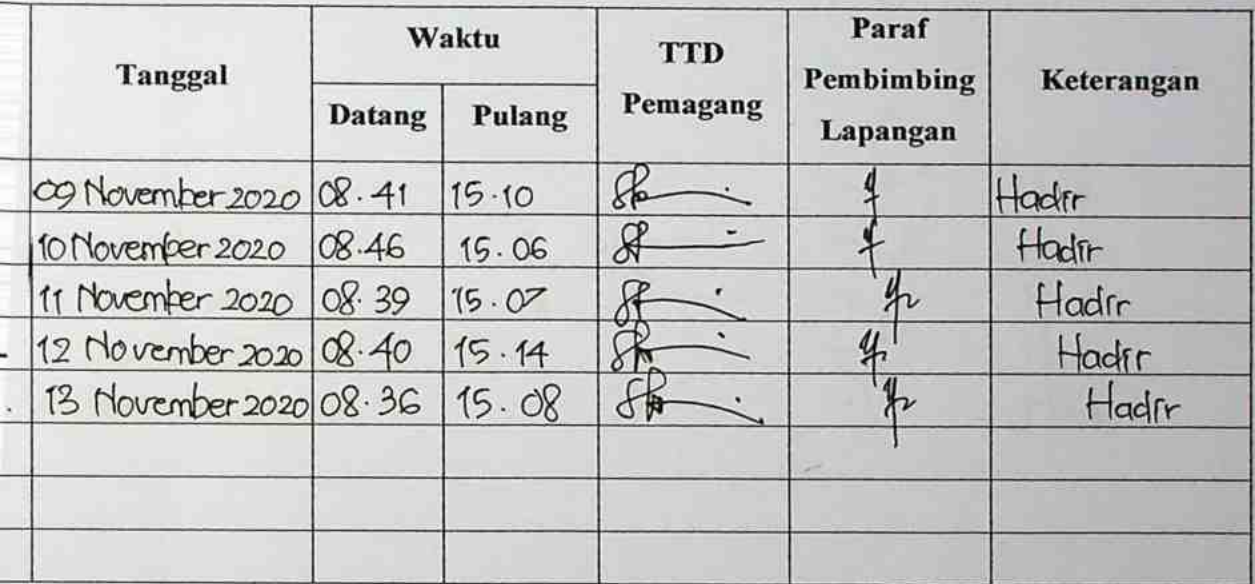 Tanggal Waktu TTD Pemagang Paraf Pembimbing Lapangan Keterangan
Datang Pulang
09 November 2020 08.41 15.10 Hadir
10 November 2020 08.46 15.06 Hadir
11 November 2020 08.39 15.07 Hadir
12 November 2020 08.40 15.14 Hadir
13 November 2020 08.36 15.08 Hadir